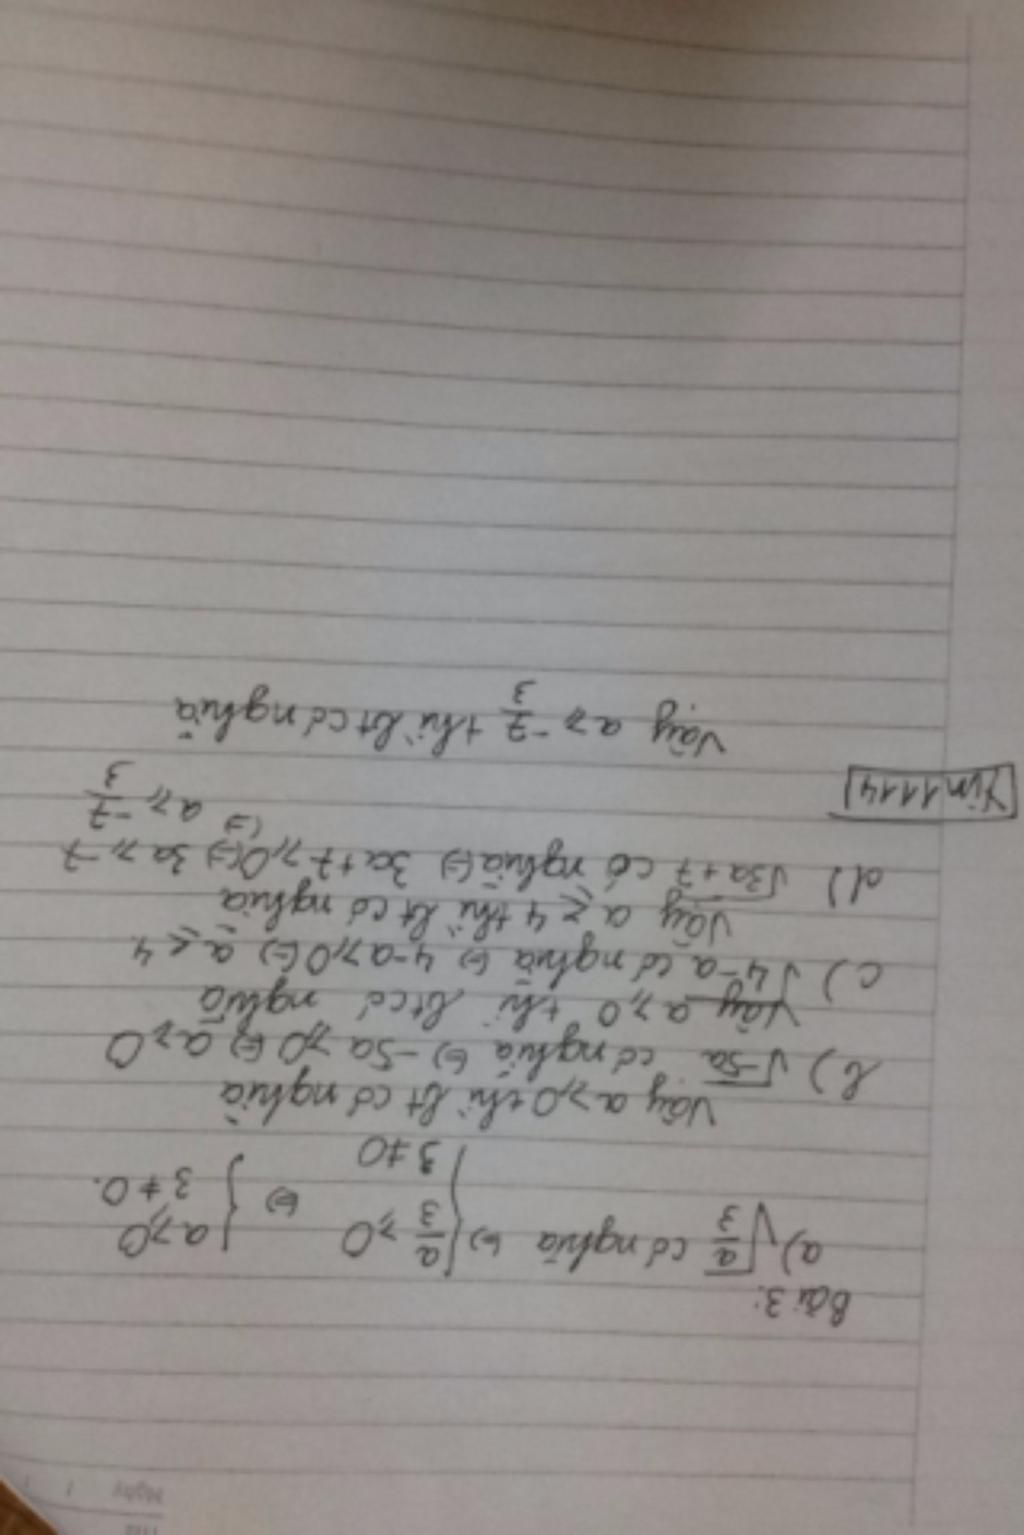 Bài 3:
a) √(a/3) có nghĩa (=) { a/3 ⩾ 0 (=) { a ⩾ 0
3 ≠ 0 3 ≠ 0.
Vậy a ⩾ 0 thì bt có nghĩa
b) √-5a có nghĩa (=) -5a ⩾ 0 (=) a ⩾ 0
Vậy a ⩾ 0 thì bt có nghĩa
c) √4-a có nghĩa (=) 4-a ⩾ 0 (=) a ⩽ 4
Vậy a ⩽ 4 thì bt có nghĩa
d) √3a+7 có nghĩa (=) 3a+7 ⩾ 0 (=) 3a ⩾ -7
(=) a ⩾ -7/3
Yim1114
Vậy a ⩾ -7/3 thì bt có nghĩa